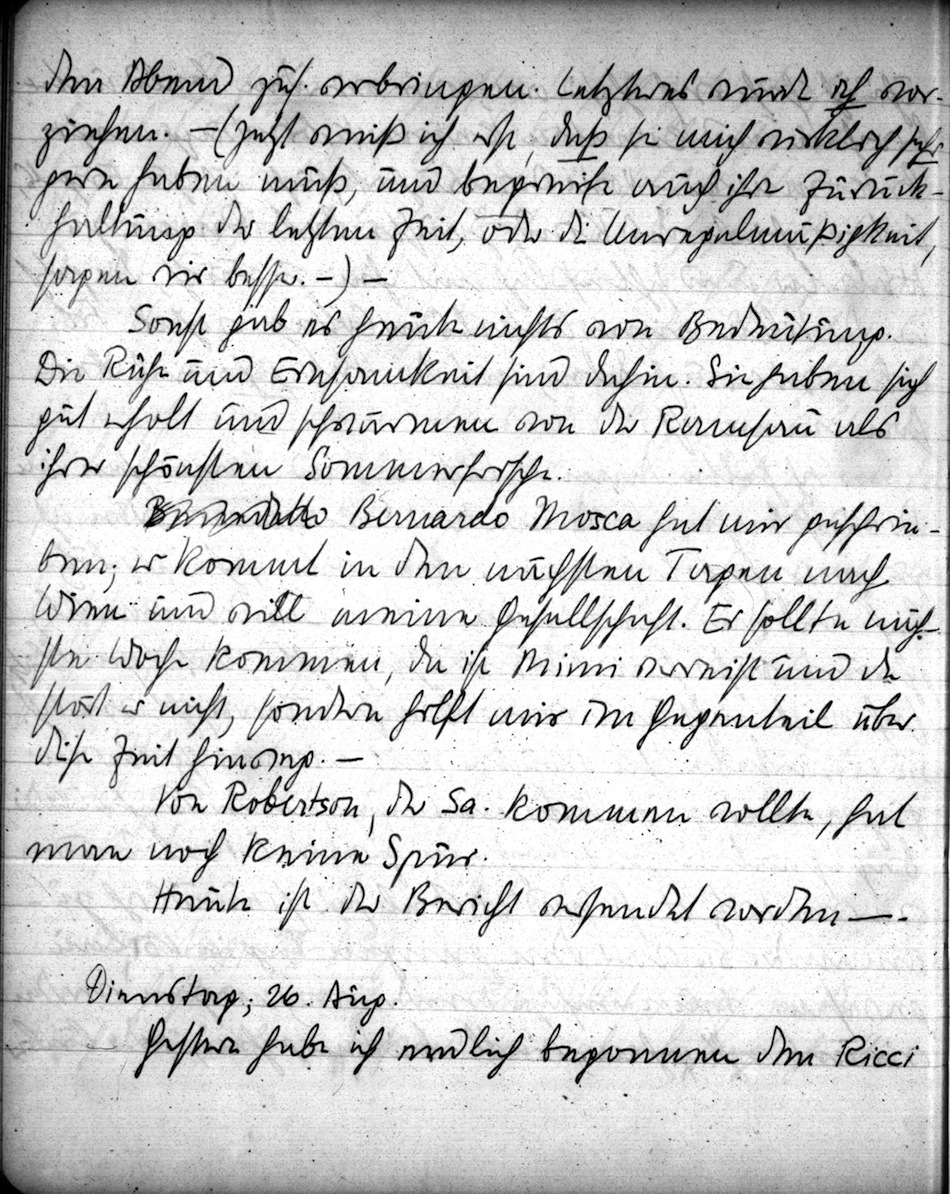 den Abend zus. verbringen. Letzteres würde ich vor-
ziehen. – (Jetzt weiß ich erst, daß sie mich wirklich sehr
gern haben muß, und begreife auch ihre Zurück-
haltung der letzten Zeit, oder die Unregelmäßigkeit,
sagen wir besser. –) –
Sonst gab es heute nichts von Bedeutung.
Die Ruhe und Einsamkeit sind dahin. Sie haben sich
gut erholt und schwärmen von der Ramsau als
ihrer schönsten Sommerfrische.
Bernardo Mosca hat mir geschrie-
ben; er kommt in den nächsten Tagen nach
Wien und will meine Gesellschaft. Er sollte näch-
ste Woche kommen, da ist Mimi verreist und da
stört er nicht, sondern hilft mir im Gegenteil über
diese Zeit hinweg. –
Von Robertson, der Sa. kommen sollte, hat
man noch keine Spur.
Heute ist der Bericht versendet worden –.
Dienstag, 26. Aug.
Gestern habe ich endlich begonnen den Ricci